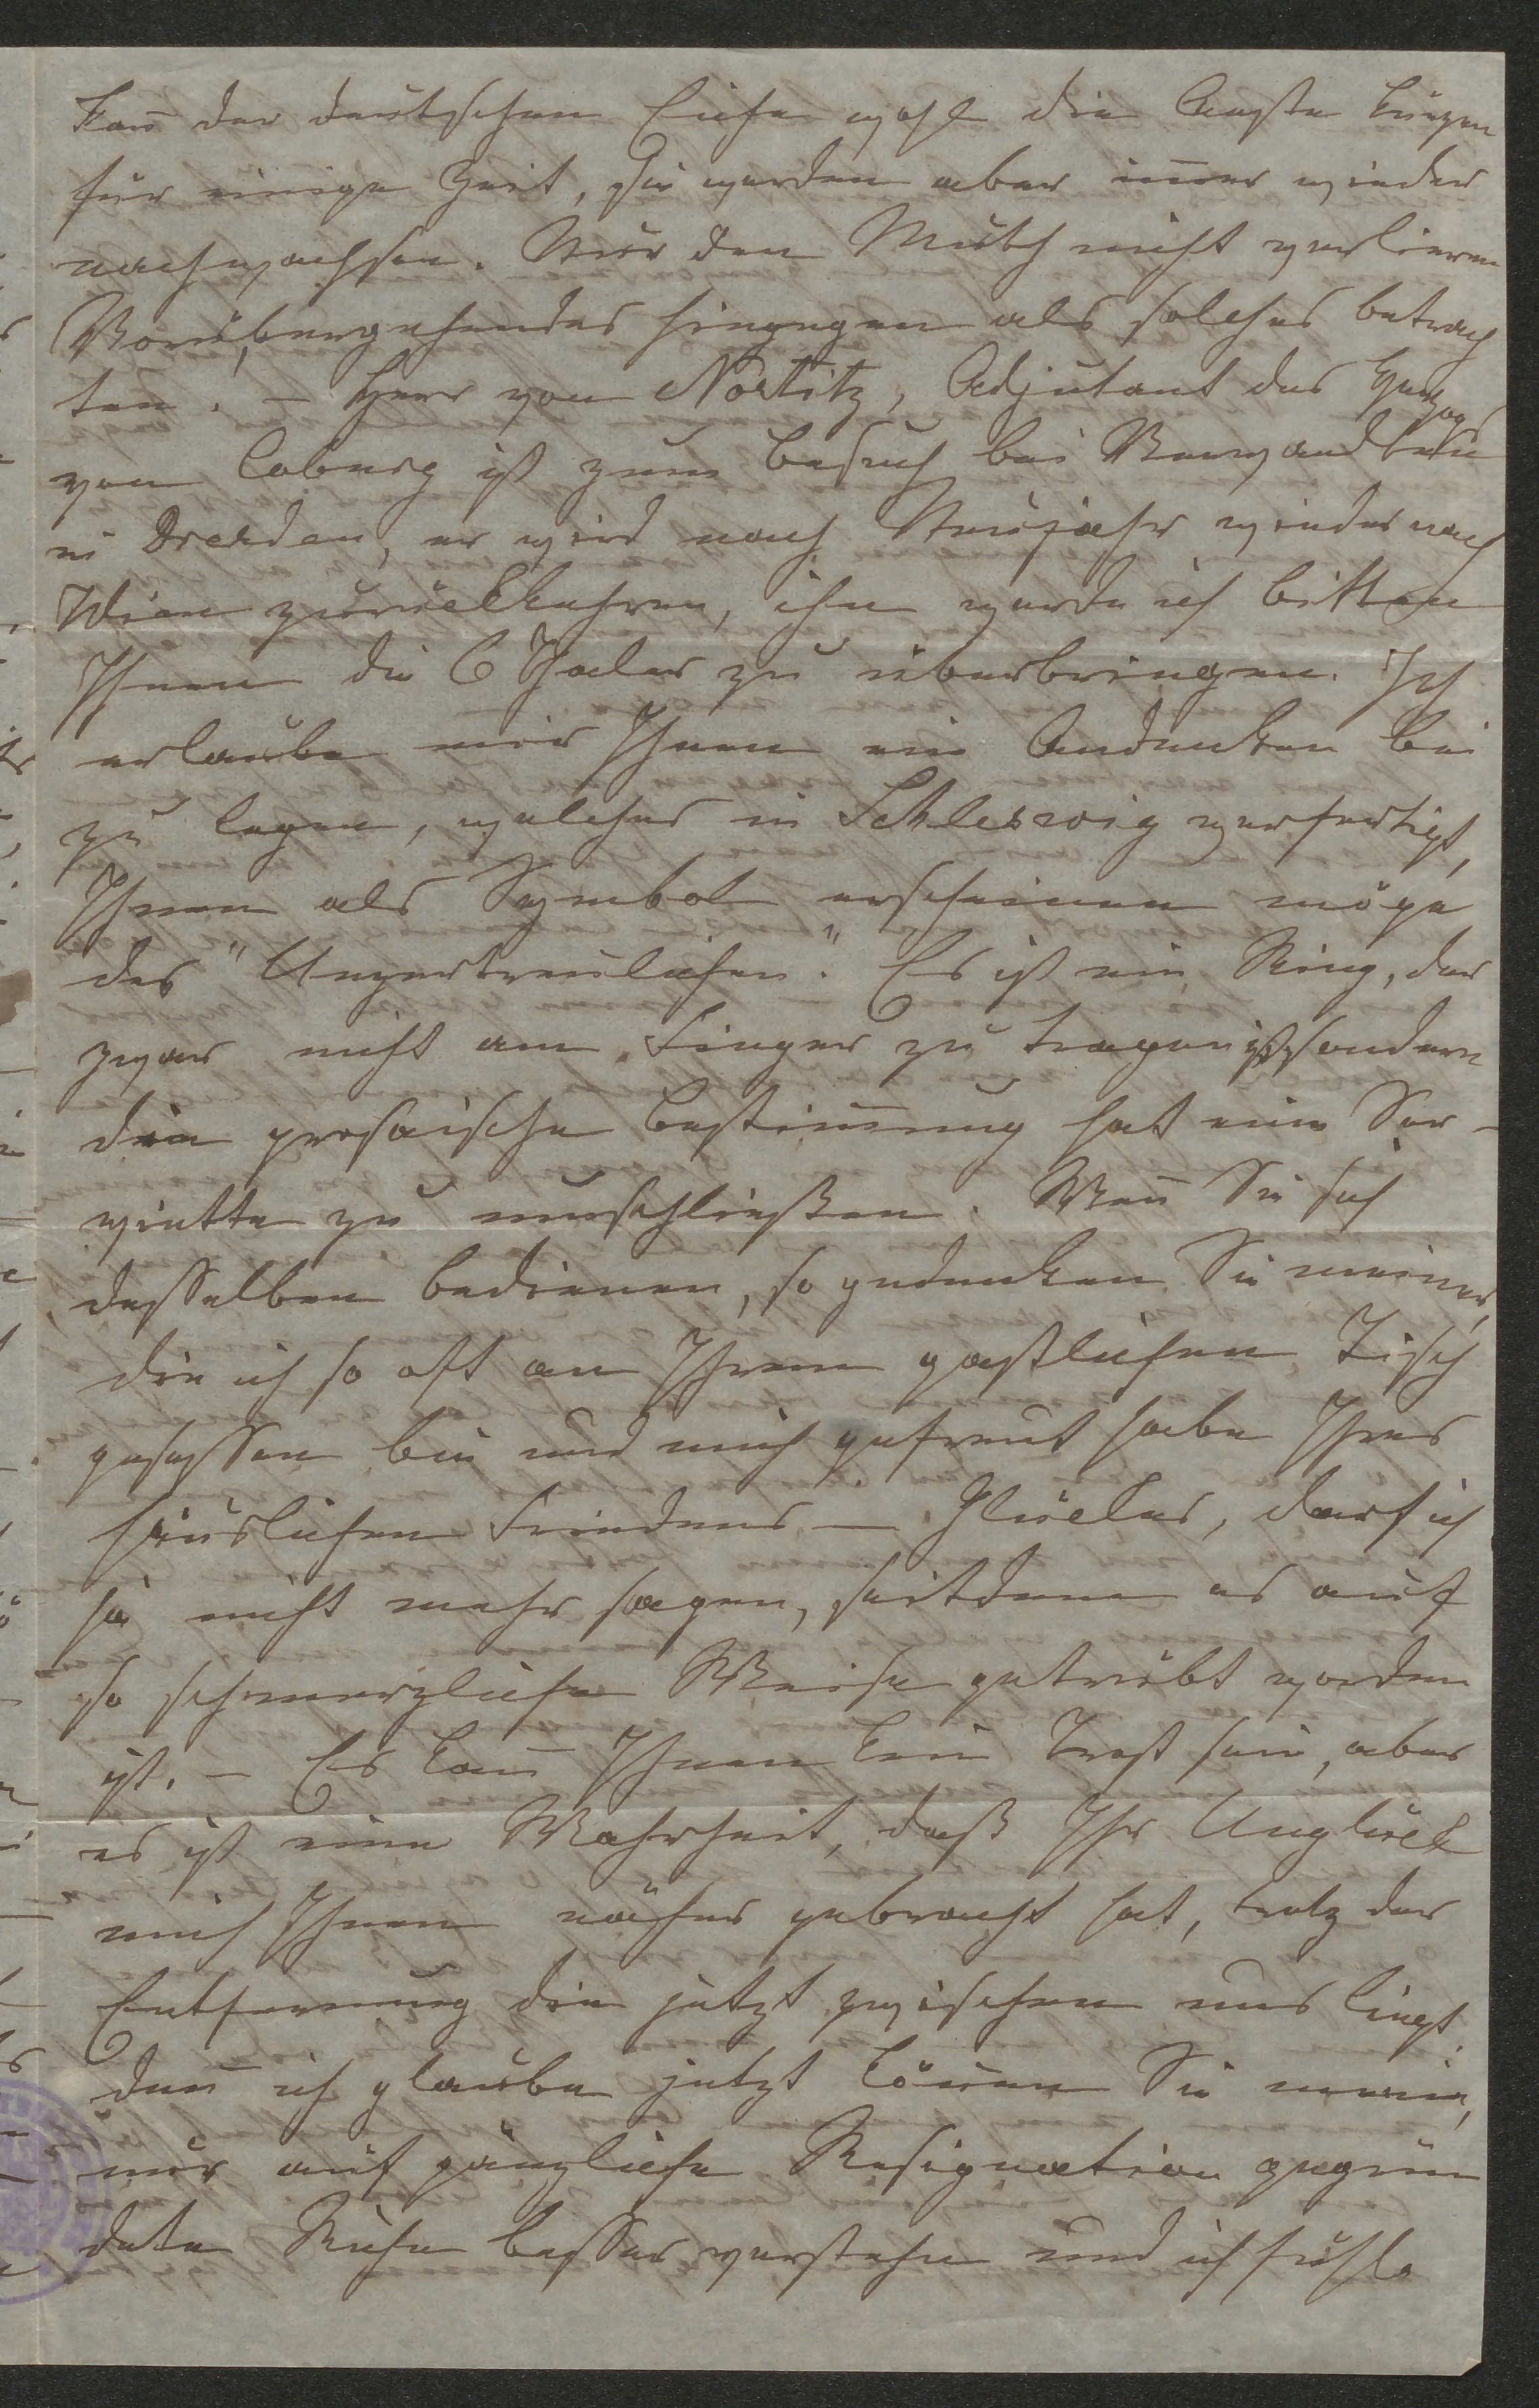 kañ der deutschen Eiche wohl die Aeste kürzen
für einige Zeit, sie werden aber im̄er wieder
nachwachsen. Nur den Muth nicht verlieren
Vorübergehendes hingegen als solches betrach
ten. – Herr von Nostitz, Adjutant des Herzogs
von Coburg ist zum Besuch bei Verwandten
in Dresden, er wird nach Neujahr wieder nach
Wien zurückkehren, ihn werde ich bitten
Ihnen die 6 Thaler zu überbringen. Ich
erlaube mir Ihnen ein Andenken bei
zu legen, welches in Schleswig verfertigt,
Ihnen als Symbol erscheinen möge
des "Unzertrenlichen". Es ist ein Ring, der
zwar nicht am Finger zu tragen ist, sondern
die prosaische Bestim̄ung hat eine Ser-
viette zu umschließen. Weñ Sie sich
desselben bedienen, so gedenken Sie meiner,
die ich so oft an Ihrem gastlichen Tisch
gesessen bin und mich gefreut habe Ihres
häuslichen Friedens – Glückes, darf ich
ja nicht mehr sagen, seitdem es auf
so schmerzliche Weise getrübt worden
ist. – Es kañ Ihnen kein Trost sein, aber
es ist eine Wahrheit, daß Ihr Unglück
mich Ihnen näher gebracht hat, trotz der
Entfernung die jetzt zwischen uns liegt.
deñ ich glaube jetzt köñen Sie meine,
nur auf gänzliche Resignation gegrün
dete Ruhe besser verstehen und ich fühle